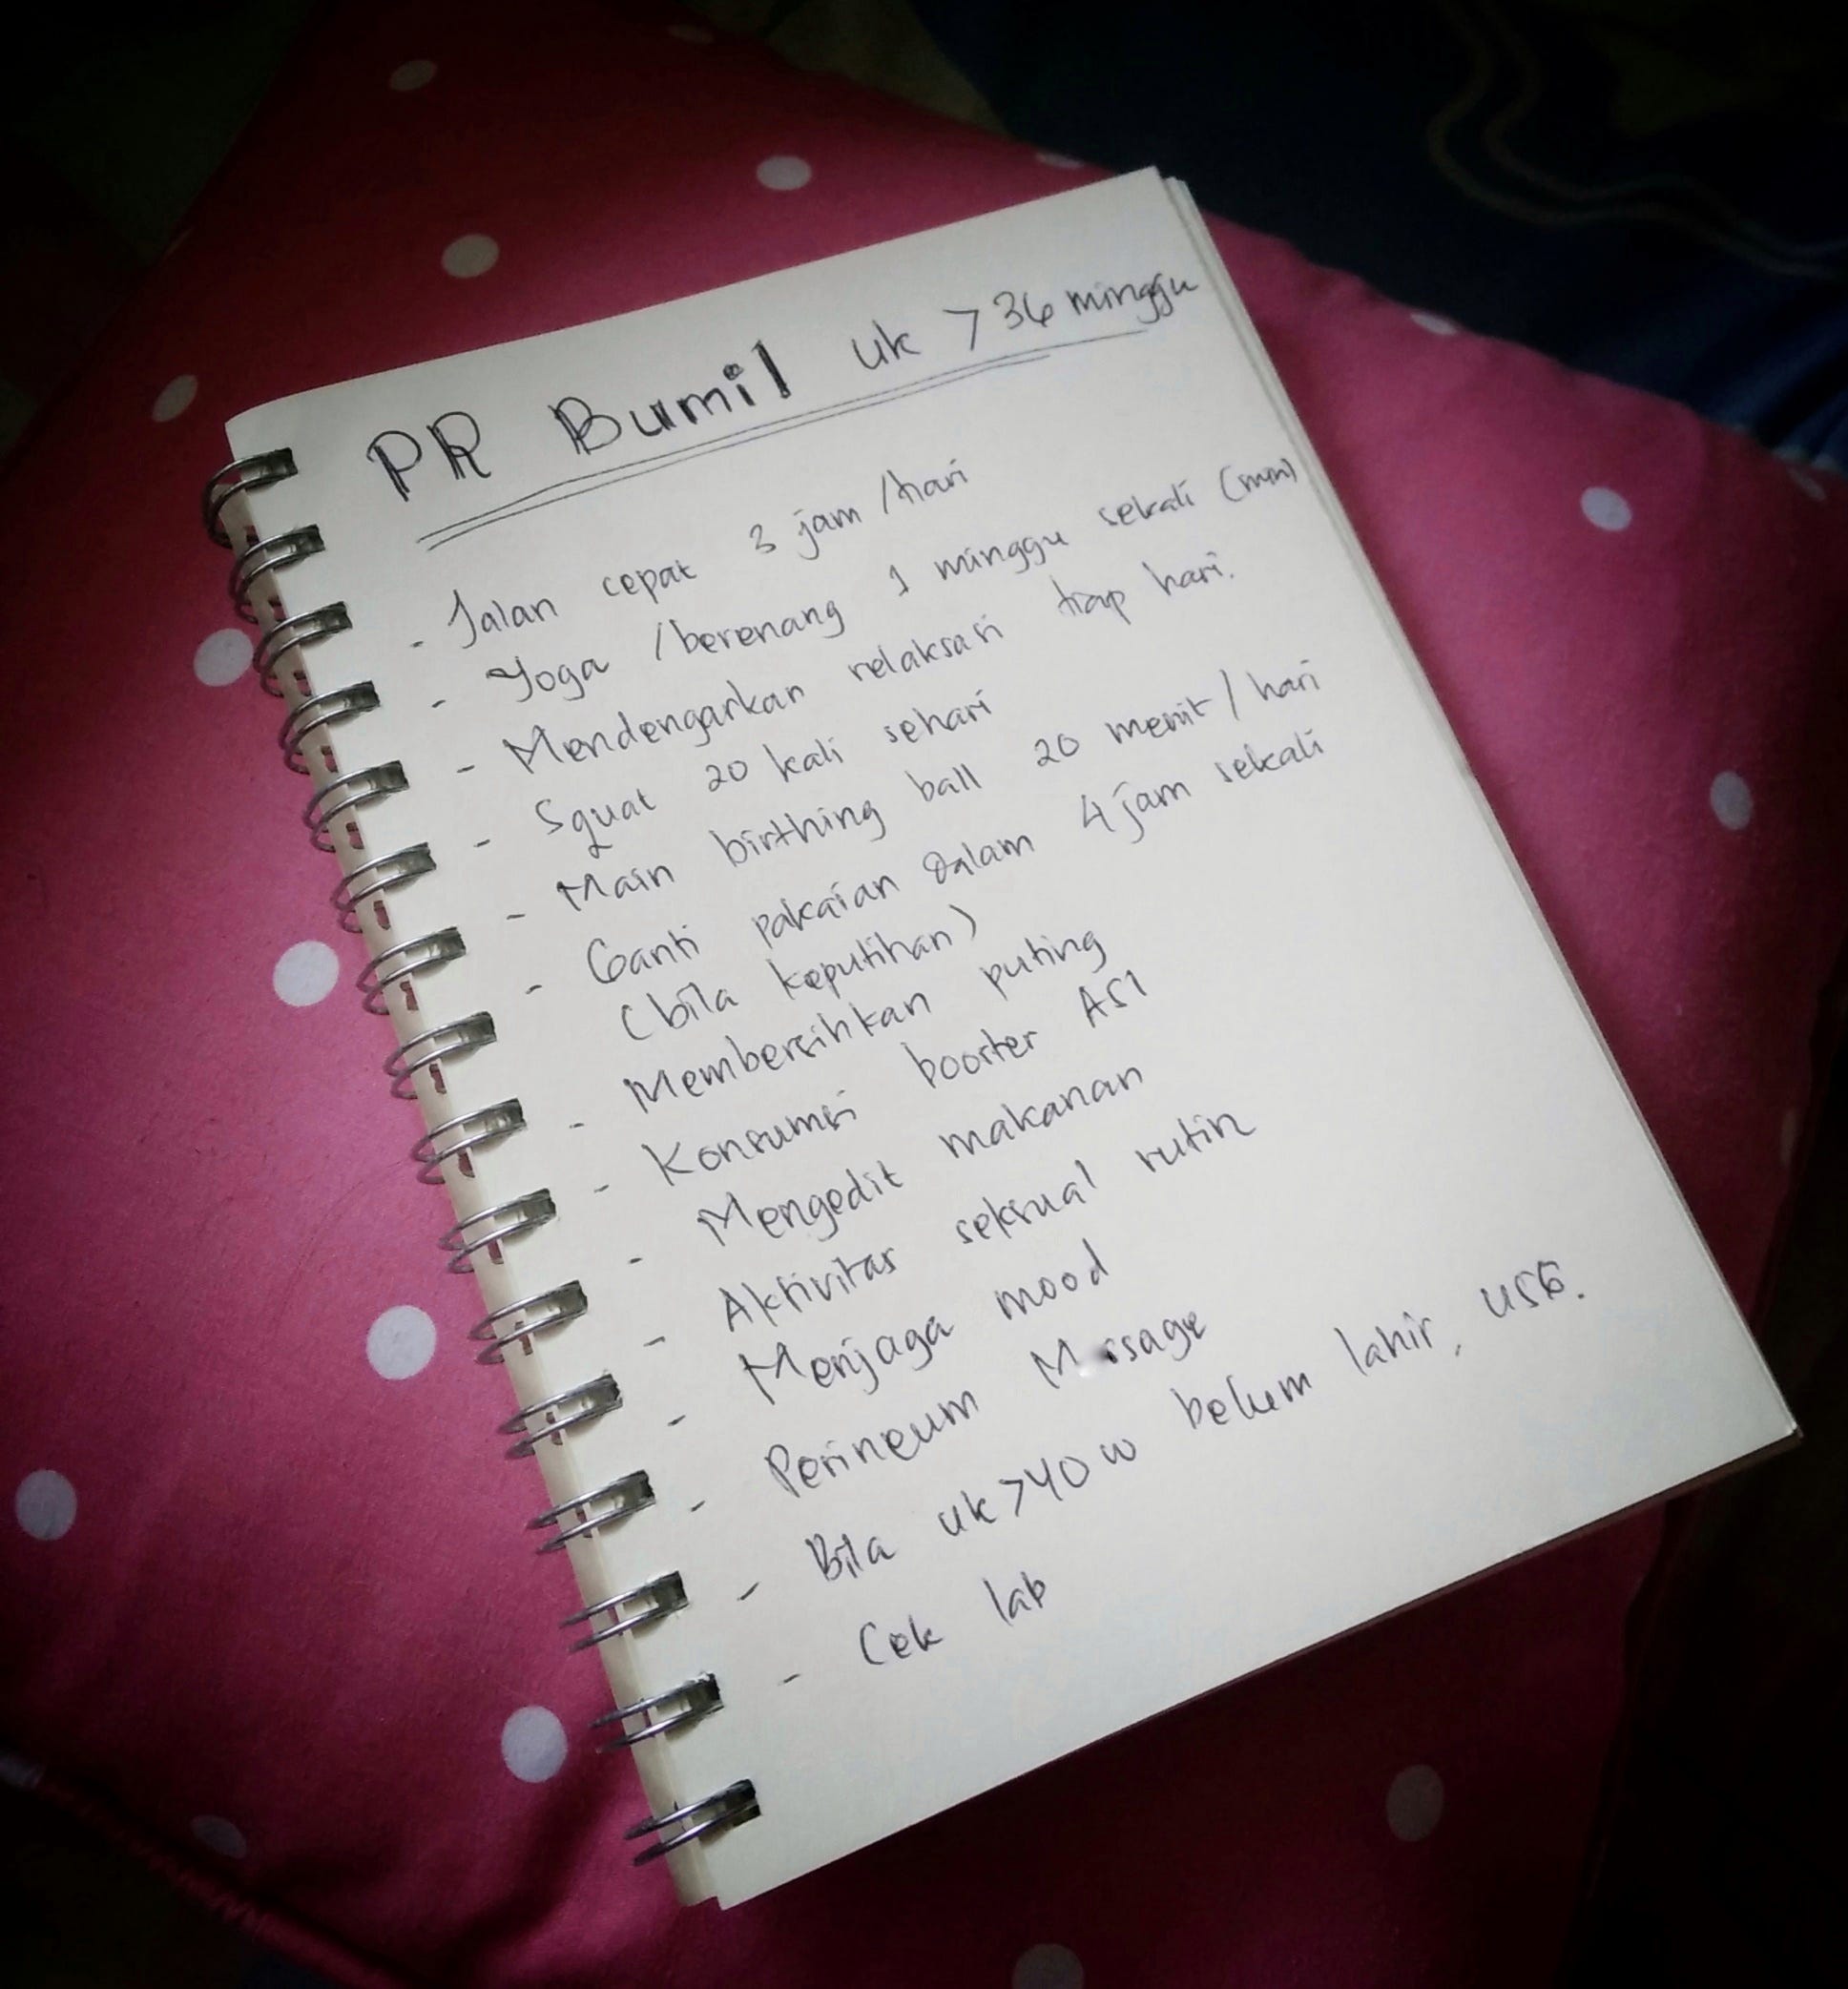 PR Bumil uk > 36 minggu
- Jalan cepat 3 jam /hari
- Yoga /berenang 1 minggu sekali (min)
- Mendengarkan relaksasi tiap hari.
- Squat 20 kali sehari
- Main birthing ball 20 menit / hari
- Ganti pakaian dalam 4 jam sekali
(bila keputihan)
- Membersihkan puting
- Konsumsi booster ASI
- Mengedit makanan
- Aktivitas seksual rutin
- Menjaga mood
- Perineum Massage
- Bila uk > 40 w belum lahir, USG.
- Cek lab